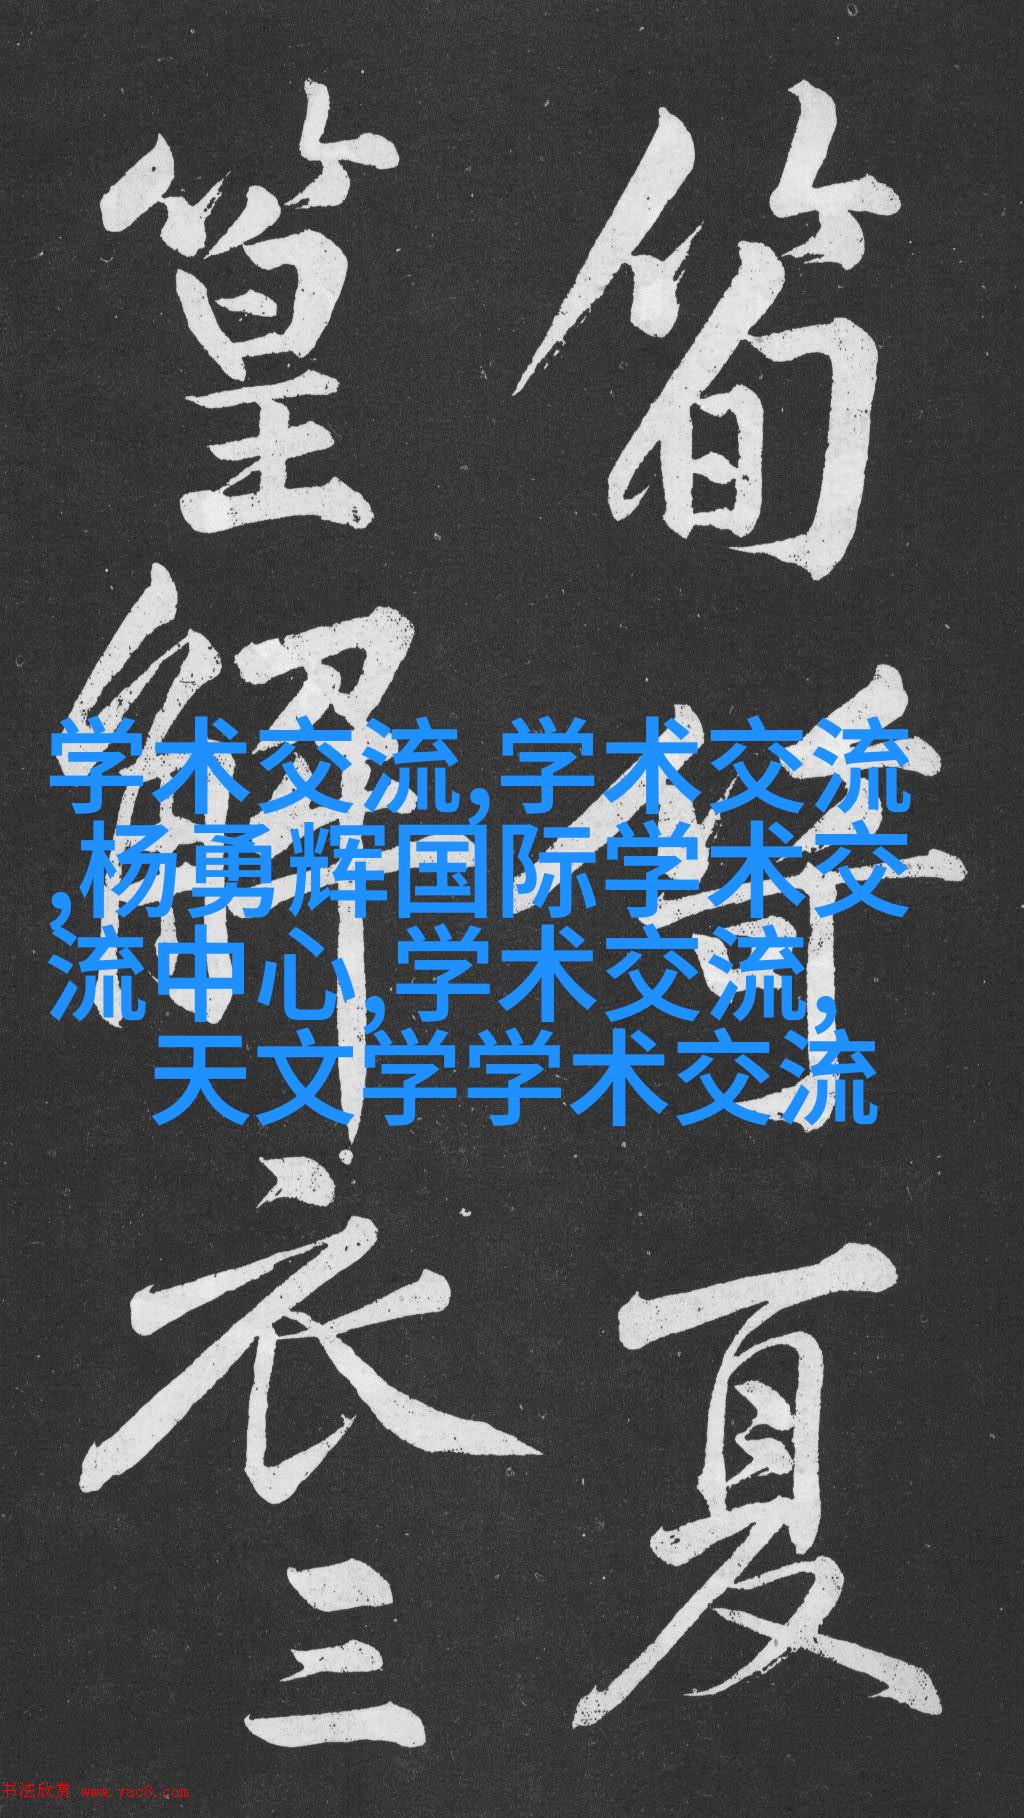 筍竿夏
篁解衣三
学术交流,学术交流
,杨勇辉国际学术交
流中心,学术交流,
天文学学术交流
书法欣赏 www.yac8.com